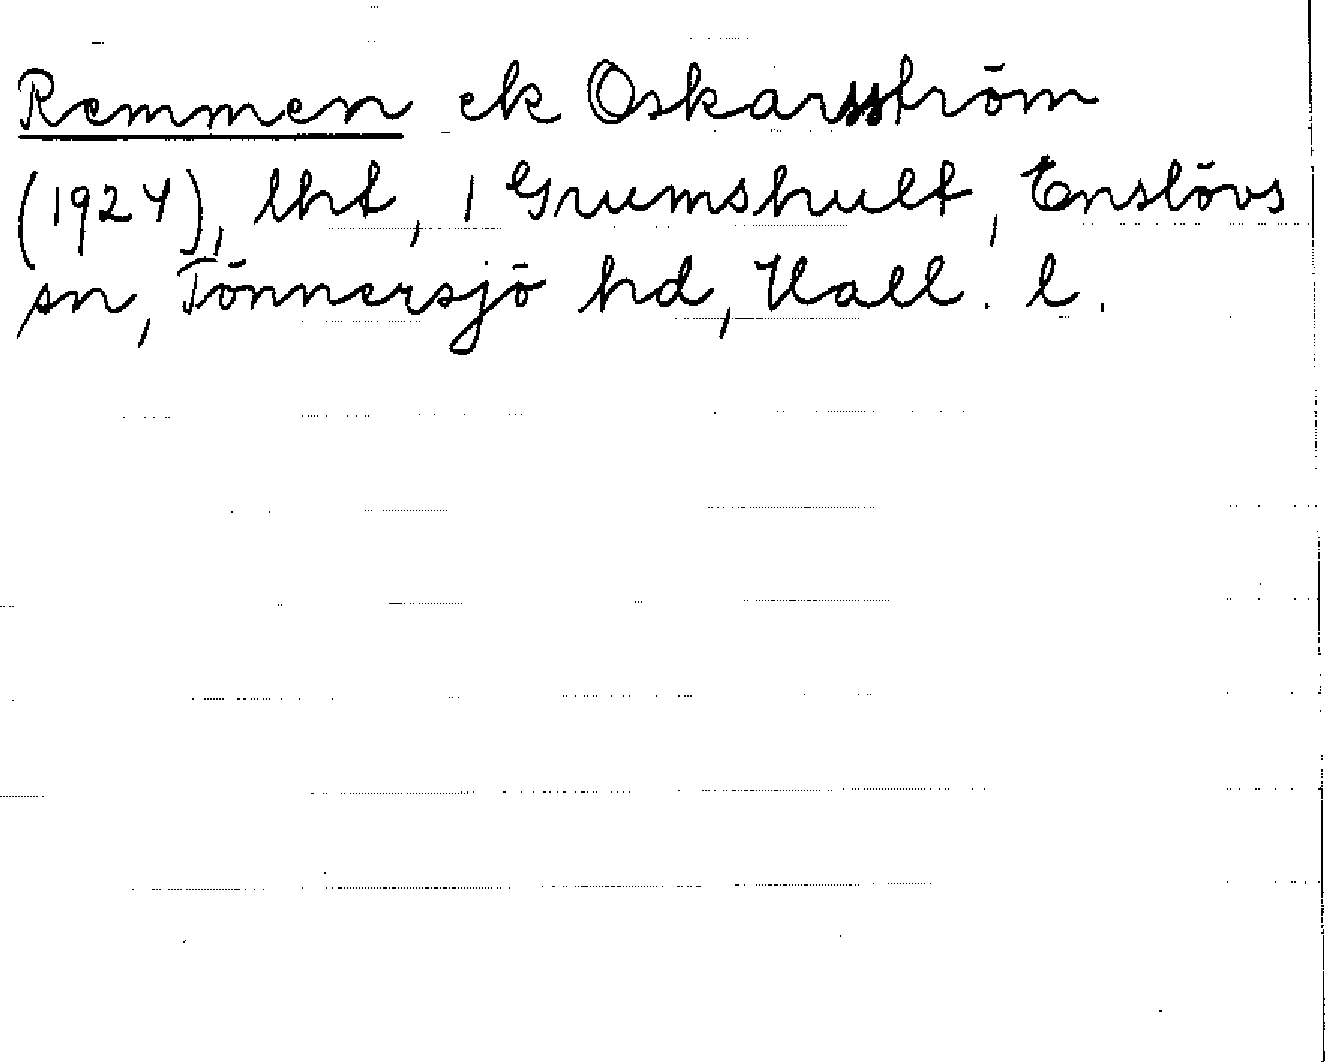 Remmen ek Oskarsström
(1924), lht, 1 Grumshult, Enslövs
sn, Tönnersjö hd, Hall. l.